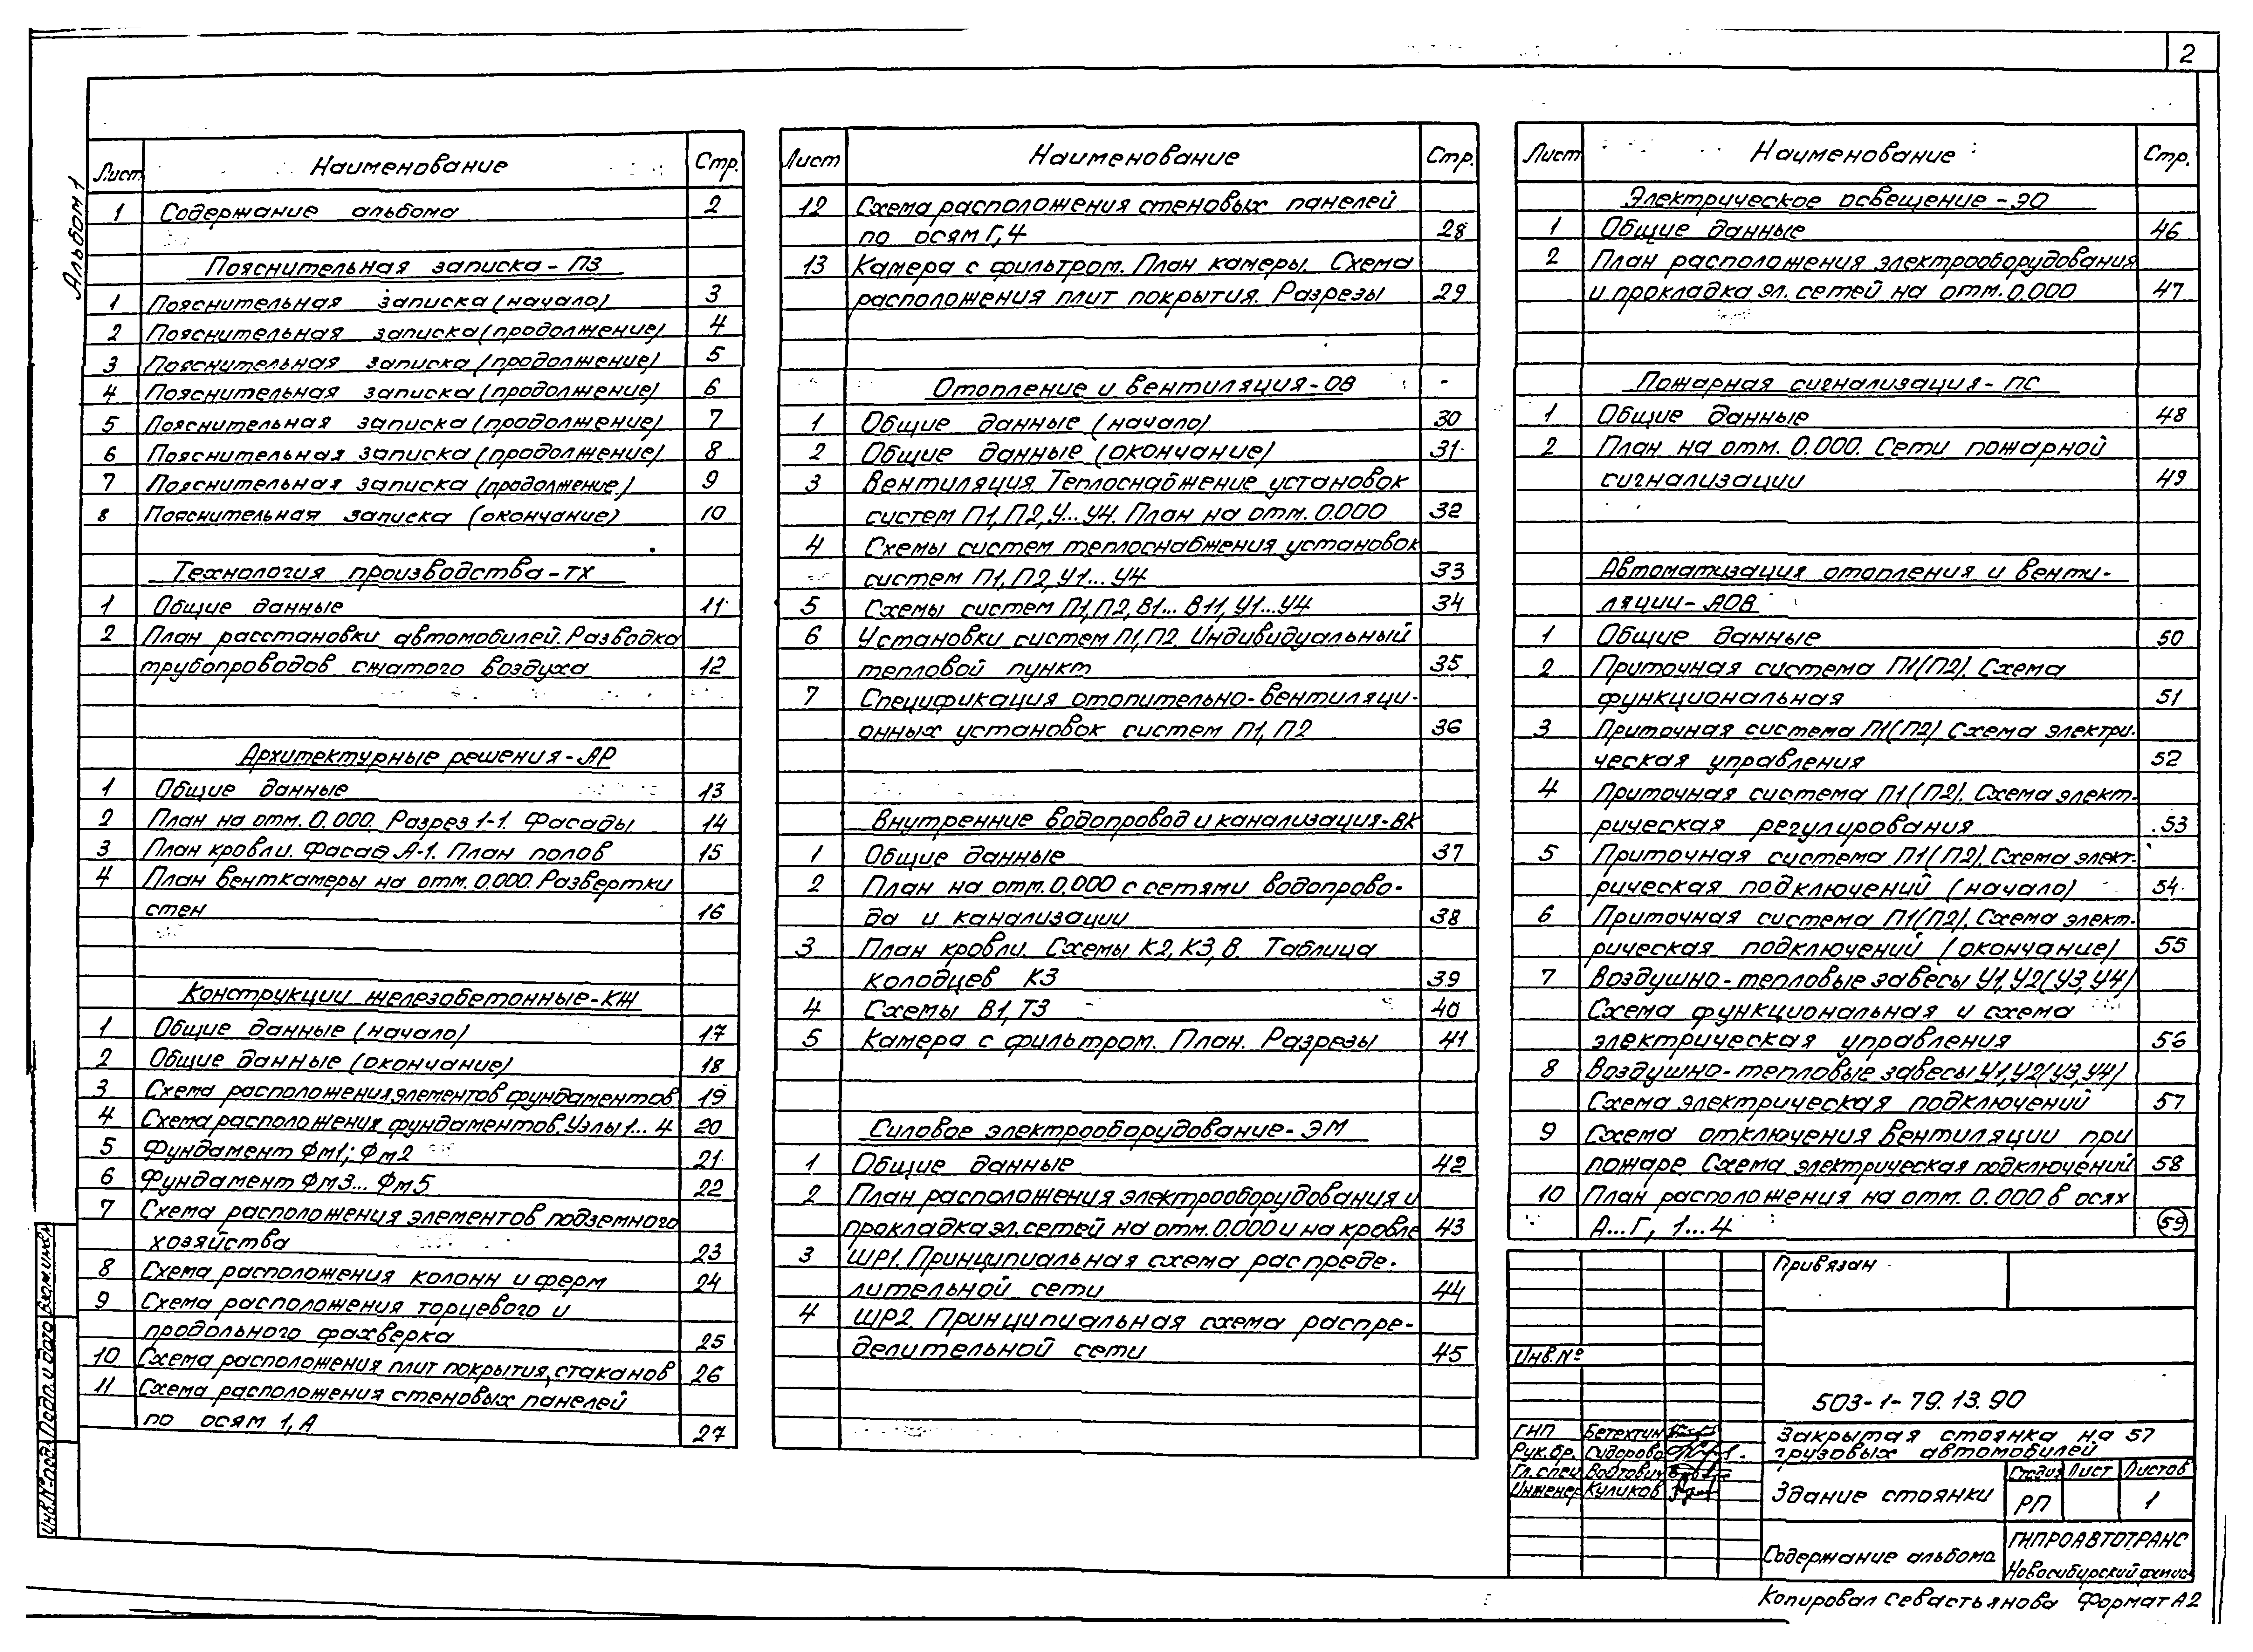 2
Альбом 1
Лист Наименование Стр.
1 Содержание альбома 2
Пояснительная записка - ПЗ
1 Пояснительная записка (начало) 3
2 Пояснительная записка (продолжение) 4
3 Пояснительная записка (продолжение) 5
4 Пояснительная записка (продолжение) 6
5 Пояснительная записка (продолжение) 7
6 Пояснительная записка (продолжение) 8
7 Пояснительная записка (продолжение) 9
8 Пояснительная записка (окончание) 10
Технология производства - ТХ
1 Общие данные 11
2 План расстановки автомобилей. Разводка
трубопроводов сжатого воздуха 12
Архитектурные решения - АР
1 Общие данные 13
2 План на отм. 0.000. Разрез 1-1. Фасады 14
3 План кровли. Фасад А-1. План полов 15
4 План венткамеры на отм. 0.000. Развертки
стен 16
Конструкции железобетонные - КЖ
1 Общие данные (начало) 17
2 Общие данные (окончание) 18
3 Схема расположения элементов фундаментов 19
4 Схема расположения фундаментов. Узлы 1...4 20
5 Фундамент Фм1; Фм2 21
6 Фундамент Фм3... Фм5 22
7 Схема расположения элементов подземного
хозяйства 23
8 Схема расположения колонн и ферм 24
9 Схема расположения торцевого и
продольного фахверка 25
10 Схема расположения плит покрытия, стаканов 26
11 Схема расположения стеновых панелей
по осям 1, А 27
Лист Наименование Стр.
12 Схема расположения стеновых панелей
по осям Г, 4 28
13 Камера с фильтром. План камеры. Схема
расположения плит покрытия. Разрезы 29
Отопление и вентиляция - ОВ
1 Общие данные (начало) 30
2 Общие данные (окончание) 31
3 Вентиляция. Теплоснабжение установок
систем П1, П2, У... У4. План на отм. 0.000 32
4 Схемы систем теплоснабжения установок
систем П1, П2, У1... У4 33
5 Схемы систем П1, П2, В1... В11, У1... У4 34
6 Установки систем П1, П2. Индивидуальный
тепловой пункт 35
7 Спецификация отопительно-вентиляци-
онных установок систем П1, П2 36
Внутренние водопровод и канализация - ВК
1 Общие данные 37
2 План на отм. 0.000 с сетями водопрово-
да и канализации 38
3 План кровли. Схемы К2, К3, В. Таблица
колодцев К3 39
4 Схемы В1, Т3 40
5 Камера с фильтром. План. Разрезы 41
Силовое электрооборудование - ЭМ
1 Общие данные 42
2 План расположения электрооборудования и
прокладка эл. сетей на отм. 0.000 и на кровле 43
3 ШР1. Принципиальная схема распреде-
лительной сети 44
4 ШР2. Принципиальная схема распре-
делительной сети 45
Лист Наименование Стр.
Электрическое освещение - ЭО
1 Общие данные 46
2 План расположения электрооборудования
и прокладка эл. сетей на отм. 0.000 47
Пожарная сигнализация - ПС
1 Общие данные 48
2 План на отм. 0.000. Сети пожарной
сигнализации 49
Автоматизация отопления и венти-
ляции - АОВ
1 Общие данные 50
2 Приточная система П1(П2). Схема
функциональная 51
3 Приточная система П1(П2) Схема электри-
ческая управления 52
4 Приточная система П1(П2). Схема элект-
рическая регулирования 53
5 Приточная система П1(П2). Схема элект-
рическая подключений (начало) 54
6 Приточная система П1(П2). Схема элект-
рическая подключений (окончание) 55
7 Воздушно-тепловые завесы У1, У2 (У3, У4)
Схема функциональная и схема
электрическая управления 56
8 Воздушно-тепловые завесы У1, У2 (У3, У4)
Схема электрическая подключений 57
9 Схема отключения вентиляции при
пожаре Схема электрическая подключений 58
10 План расположения на отм. 0.000 в осях
А...Г, 1...4 59
Привязан
Инв. №
503-1-79.13.90
ГИП Бетехтин
Рук. бр. Сидорова
Гл. спец Войтович
Инженер Куликов
Закрытая стоянка на 57
грузовых автомобилей
Здание стоянки
Стадия Лист Листов
РП 1
Содержание альбома
ГИПРОАВТОТРАНС
Новосибирский филиал
Копировал Севастьянова Формат А2
Инв. № подл. Подп. и дата Взам. инв. №